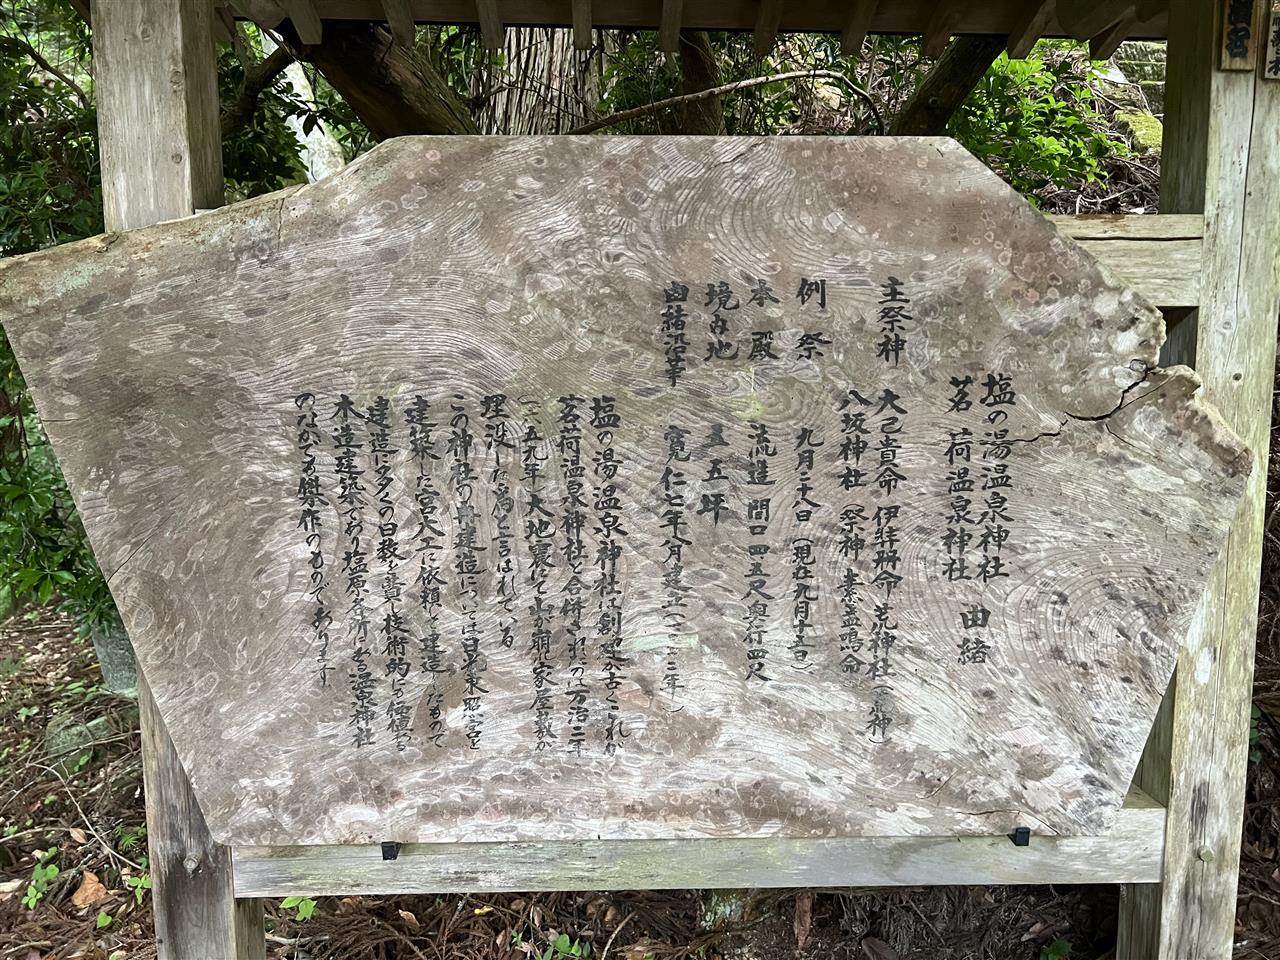 塩の湯温泉神社
茗荷温泉神社 由緒
主祭神 大己貴命 伊弉冊命 荒神社(荒神)
八坂神社 祭神 素盞鳴命
例祭 九月二十八日(現在九月十五日)
本殿 流造 間口四五尺奥行四尺
境内地 五五坪
由緒沿革 寛仁七年八月建立(一〇二三年)
塩の湯温泉神社は創建が古くこれが
茗荷温泉神社と合併されたのは万治二年
(一六五九年)大地震にて山が崩れ家屋数か
埋没した為と言はれている
この神社の再建造については日光東照宮を
建築した宮大工に依頼し建造したもので
建造に多くの日数を費し技術的にも価値ある
木造建築であり塩原
温泉神社
のなかでも傑作のものであります